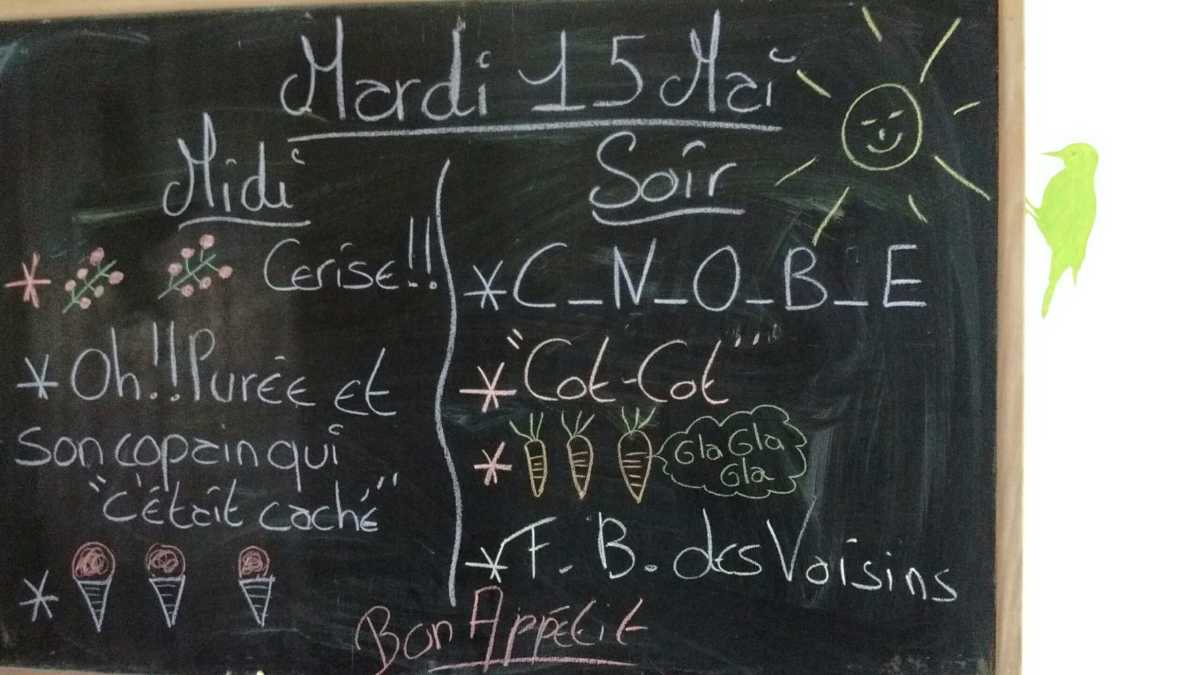 Mardi 15 Mai
Midi
* Cerise!!
* Oh!! Purée et
son copain qui
"c'était caché"
*
Soir
* C_N_O_B_E
* "Cot-Cot"
* Gla Gla
Gla
* F. B. des Voisins
Bon Appétit